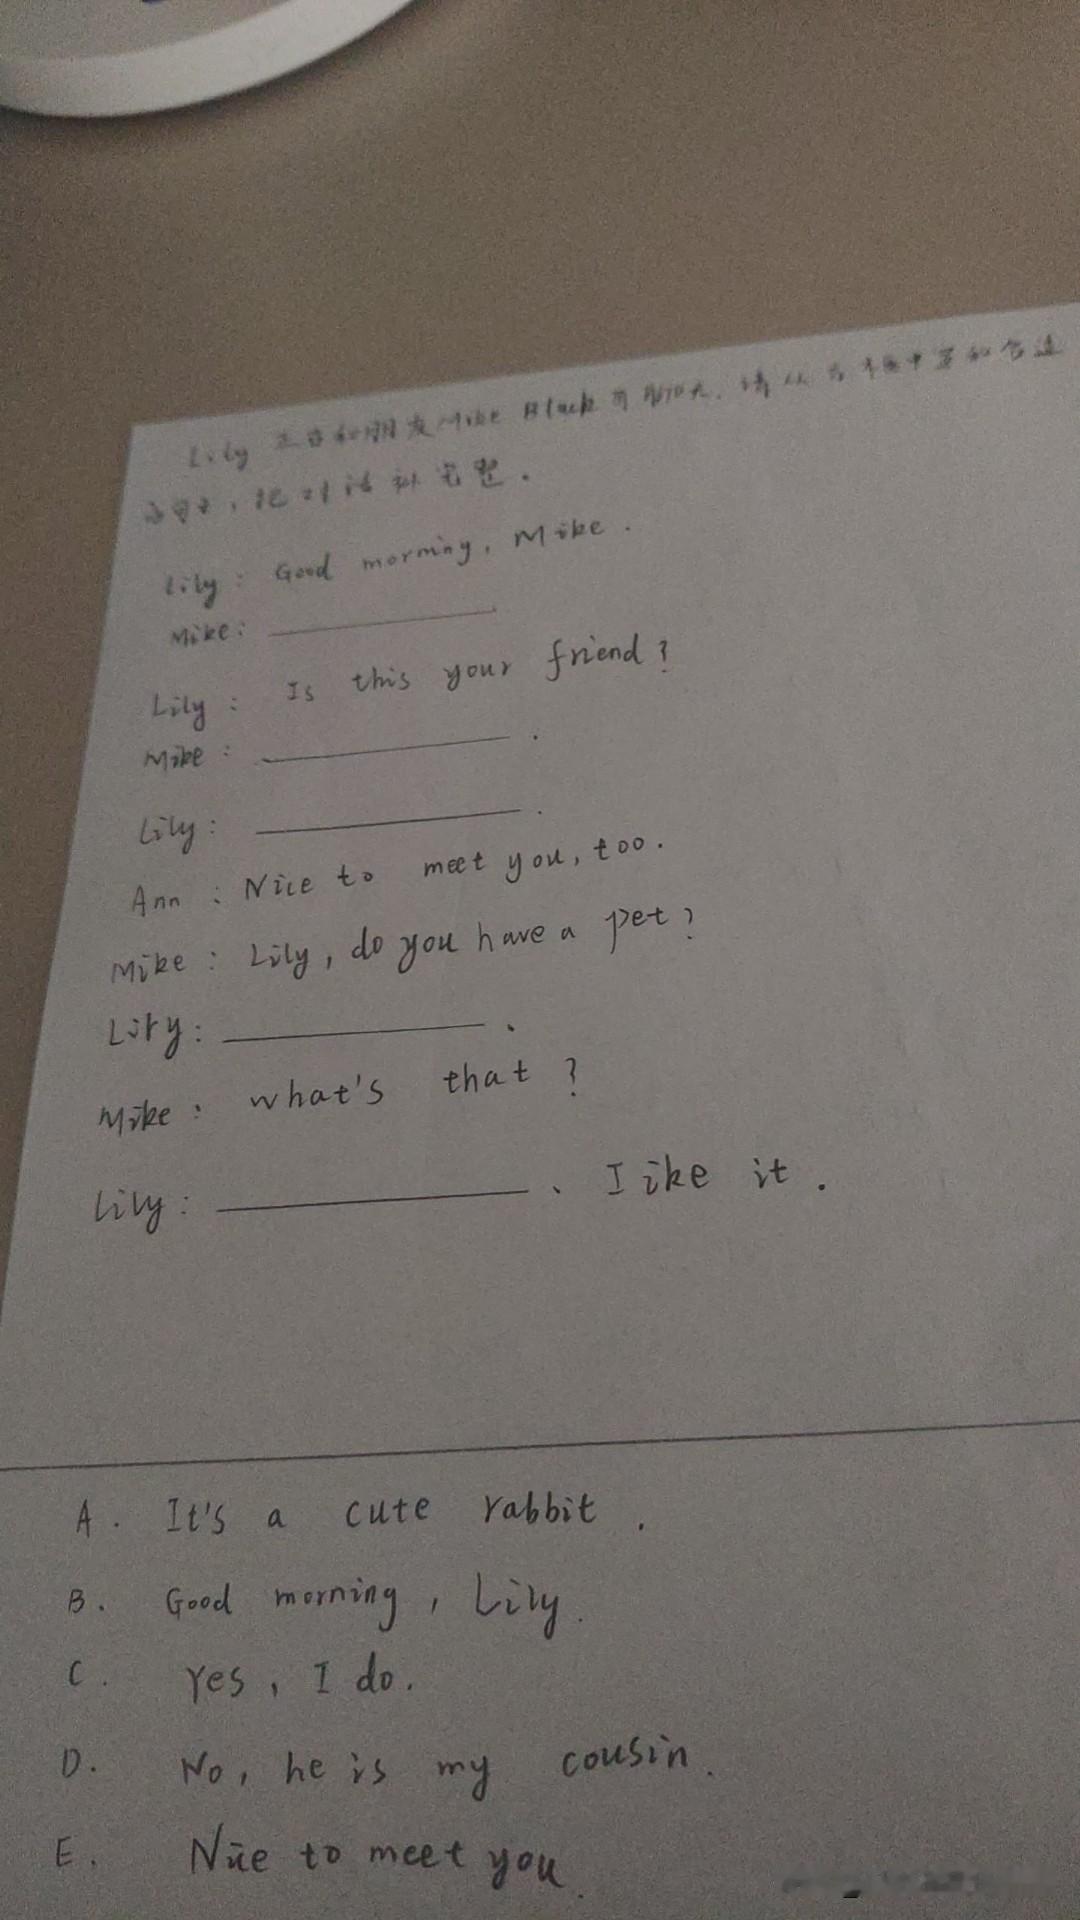 Lily 正在和朋友Mike Black 聊天,请从方框中
句子,把对话补完整.
Lily: Good morning, Mike.
Mike:
Lily: Is this your friend?
Mike: .
Lily: .
Ann: Nice to meet you, too.
Mike: Lily, do you have a pet?
Lily: .
Mike: what's that?
Lily: 、I ike it.
A. It's a cute rabbit.
B. Good morning, Lily.
C. Yes, I do.
D. No, he is my cousin.
E. Nice to meet you.